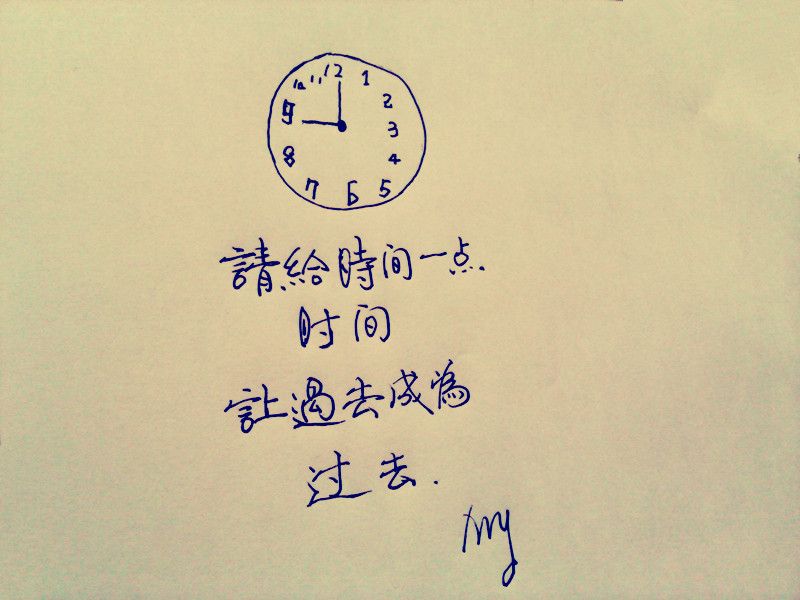 12
11
1
10
2
9
3
8
4
7
6
5
請給時间一点
时间
让過去成為
过去.